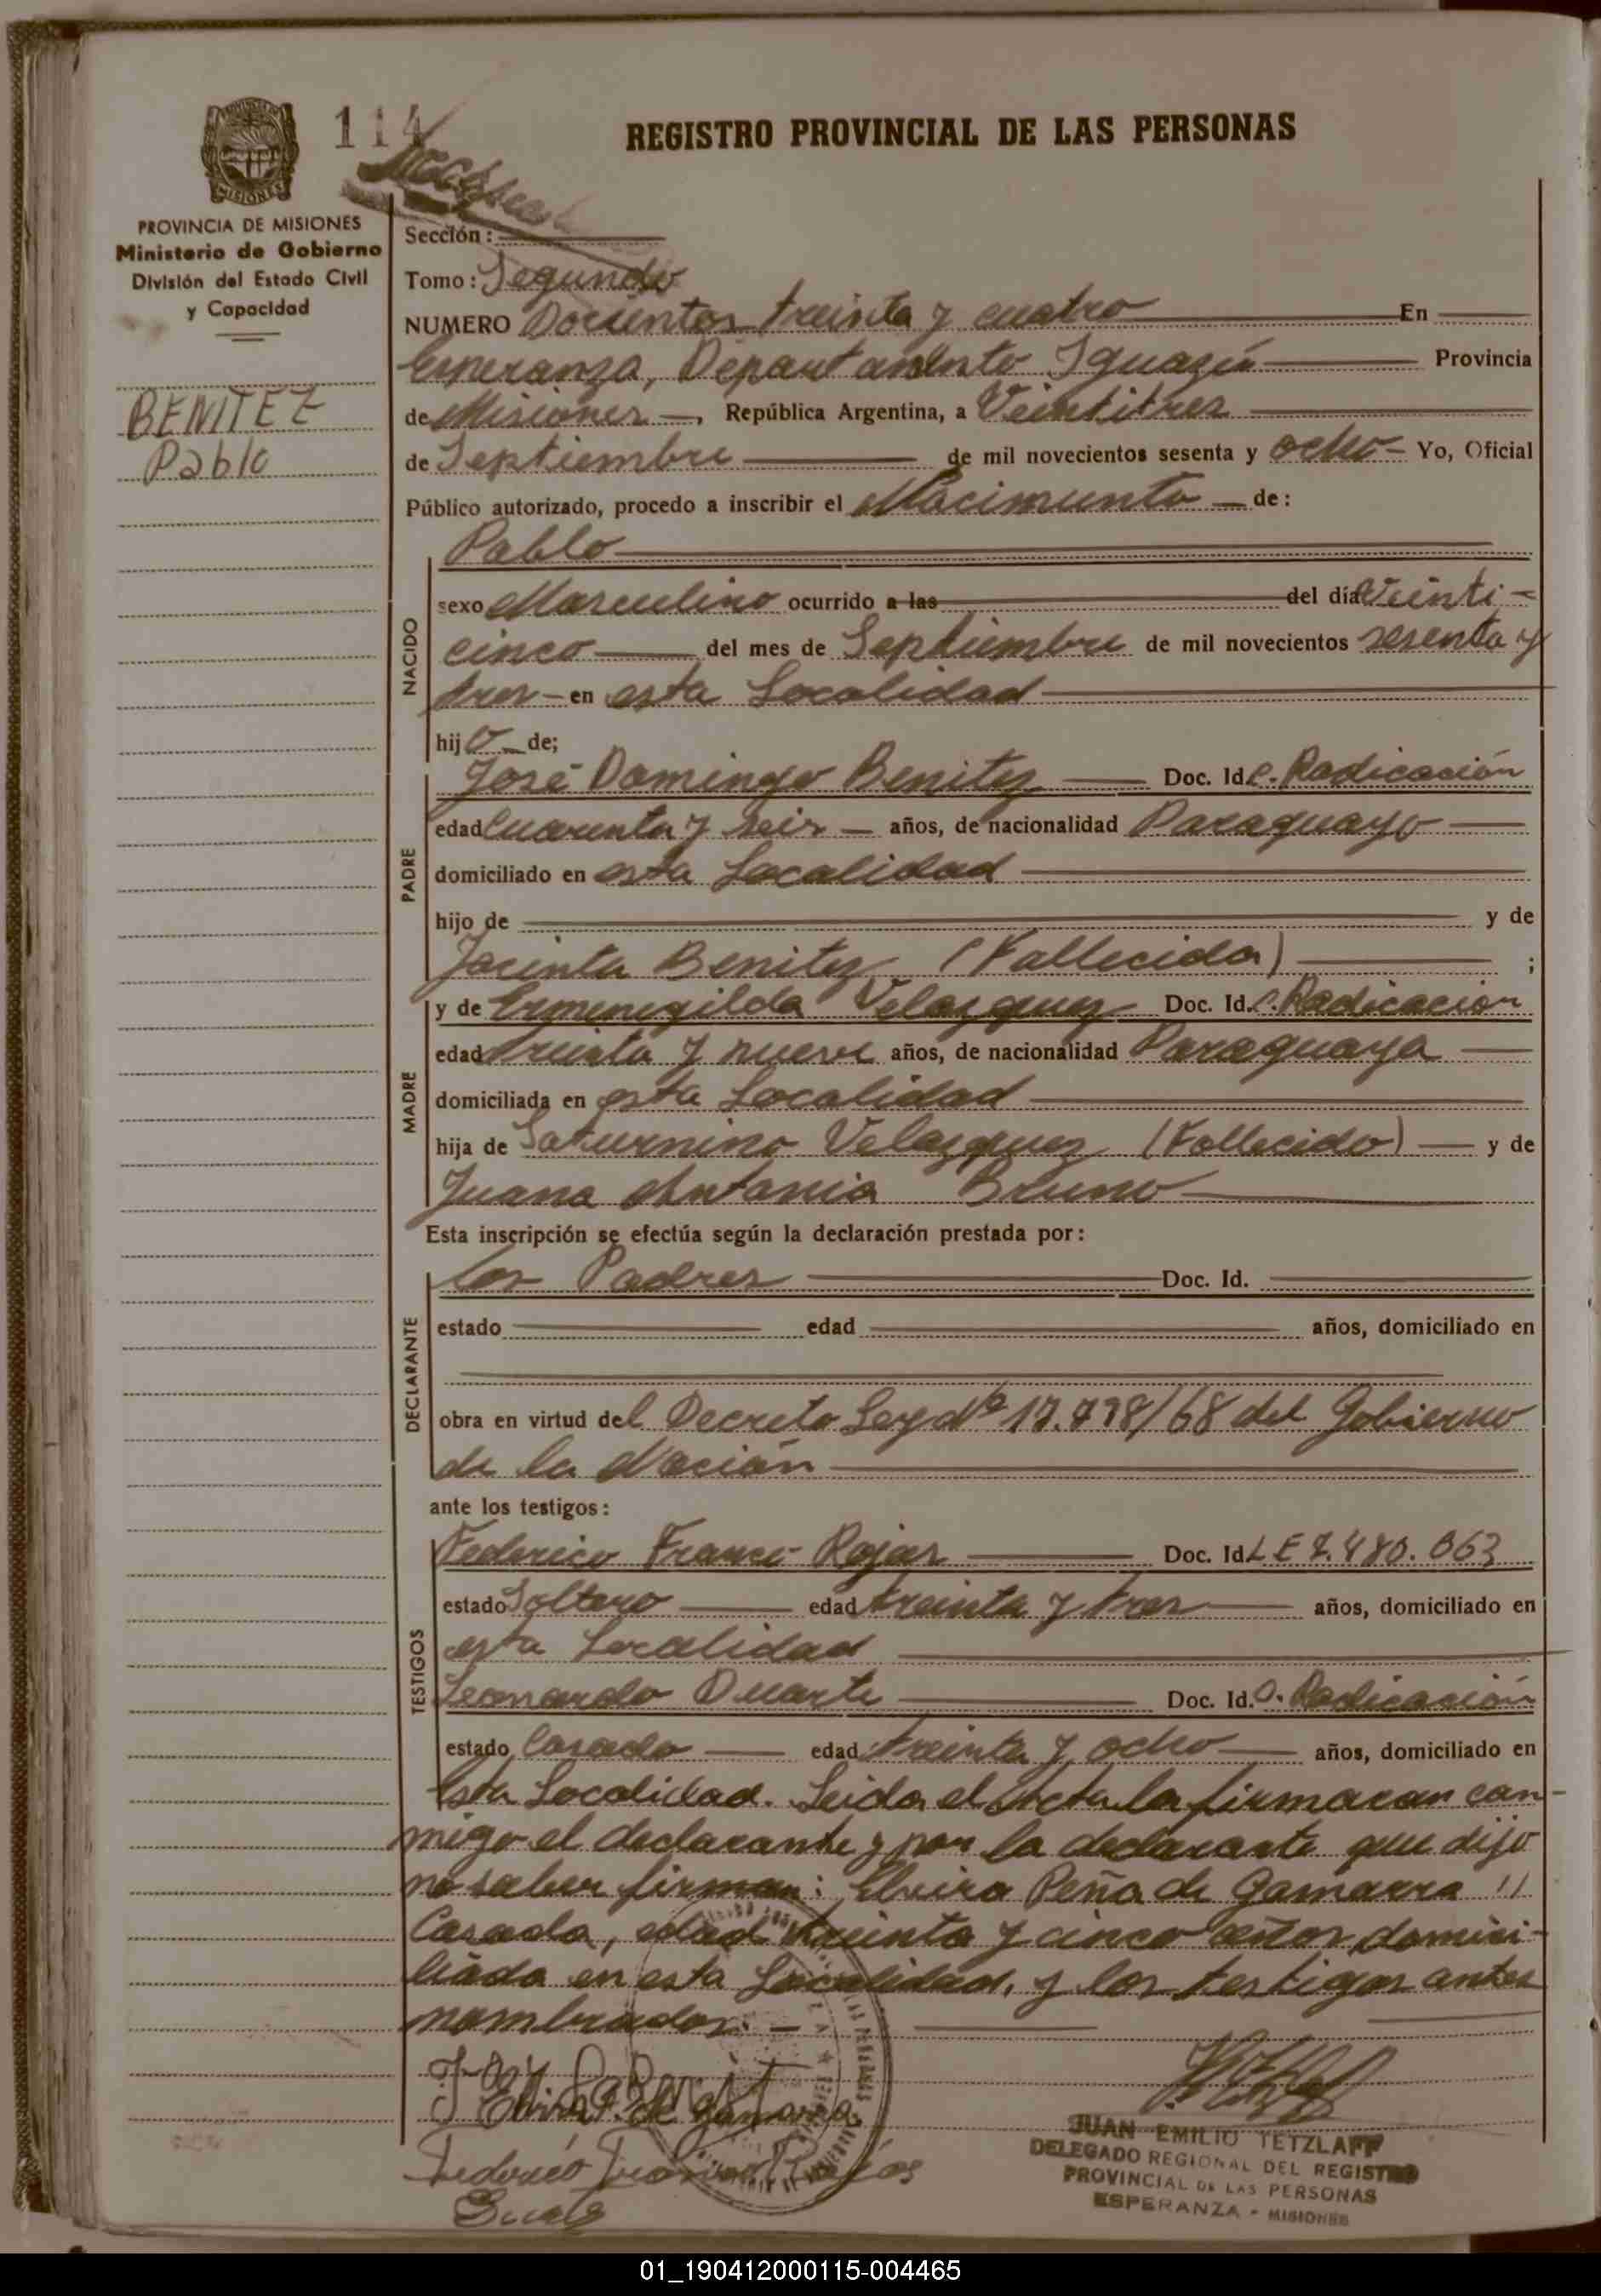 114
REGISTRO PROVINCIAL DE LAS PERSONAS
PROVINCIA DE MISIONES
Ministerio de Gobierno
División del Estado Civil
y Capacidad
BENITEZ
Pablo
Sección:
Tomo: Segundo
NUMERO Docientos treinta y cuatro En
Esperanza, Departamento Iguazú Provincia
de Misiones, República Argentina, a Veintitres
de Septiembre de mil novecientos sesenta y ocho Yo, Oficial
Público autorizado, procedo a inscribir el Nacimiento de:
NACIDO
Pablo
sexo Masculino ocurrido a las del día Veinti-
cinco del mes de Septiembre de mil novecientos sesenta y
tres en esta Localidad
hijo de;
PADRE
José Domingo Benitez Doc. Id. C. Radicación
edad Cuarenta y seis años, de nacionalidad Paraguayo
domiciliado en esta Localidad
hijo de y de
Jacinta Benitez (Fallecida) ;
MADRE
y de Ermenegilda Velazquez Doc. Id. C. Radicación
edad treinta y nueve años, de nacionalidad Paraguaya
domiciliada en esta Localidad
hija de Saturnino Velazquez (Fallecido) y de
Juana Antonia Bruno
Esta inscripción se efectúa según la declaración prestada por:
DECLARANTE
Los Padres Doc. Id.
estado edad años, domiciliado en
obra en virtud del Decreto Ley Nº 17.778/68 del Gobierno
de la Nación
ante los testigos:
TESTIGOS
Federico Franco Rojas Doc. Id. L E 7.480.063
estado Soltero edad treinta y tres años, domiciliado en
esta Localidad
Leonardo Duarte Doc. Id. C. Radicación
estado Casado edad treinta y ocho años, domiciliado en
esta Localidad. Leida el Acta la firmaran con-
migo el declarante y por la declarante que dijo
no saber firmar: Elvira Peña de Gamarra
Casada, edad treinta y cinco años domici-
liada en esta Localidad, y los testigos antes
nombrados.
Elvira P. de Gamarra
Federico Franco Rojas
JUAN EMILIO TETZLAFF
DELEGADO REGIONAL DEL REGISTRO
PROVINCIAL DE LAS PERSONAS
ESPERANZA - MISIONES
01_190412000115-004465